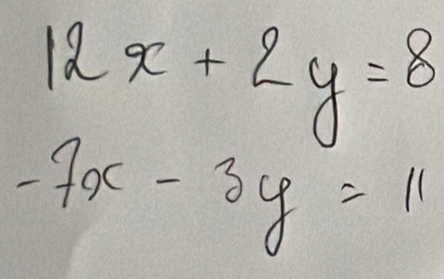 12x + 2y = 8
-7x - 3y = 11